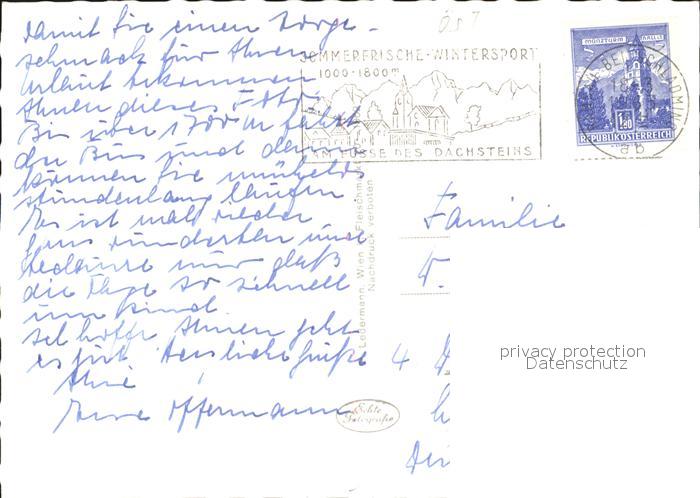 Damit Sie einen Vorge-
schmack für Ihren
Urlaub bekommen
Ihnen dieses Foto.
Bis über 1700 m fährt
der Bus und dann
können Sie mühelos
stundenlang laufen
Es ist mal wieder
ganz wunderbar und
bedaure nur daß
die Tage so schnell
um sind.
Ich hoffe Ihnen geht
es gut Herzliche Grüße
Ihre
Offermann
SOMMERFRISCHE-WINTERSPORT
1000-1800m
AM FUSSE DES DACHSTEINS
MÜNZTURM HALL
1.80
REPUBLIK ÖSTERREICH
BEI SCHLADMING
Ledermann, Wien
Nachdruck verboten
Familie
4
Echte
Fotografie
privacy protection
Datenschutz